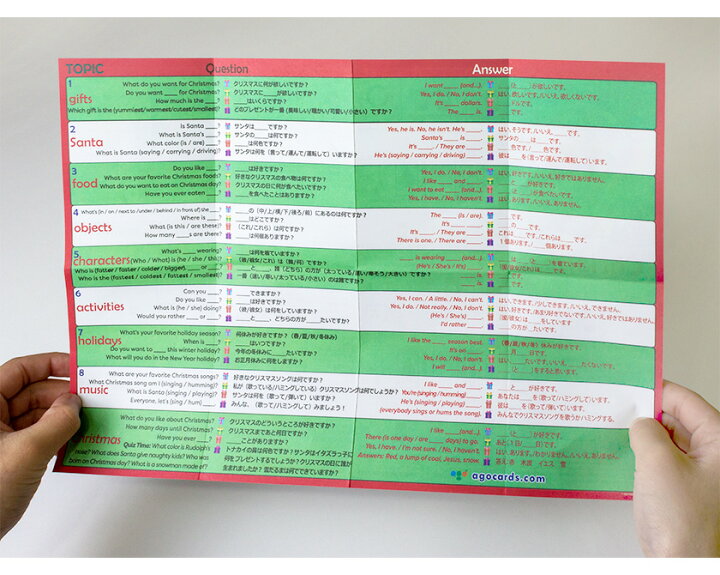 TOPIC Question Answer
1 gifts
What do you want for Christmas? クリスマスに何が欲しいですか? I want ____ (and...). ____(と____)が欲しいです。
Do you want ____ for Christmas? クリスマスに____が欲しいですか? Yes, I do. / No, I don't. はい、欲しいです。/いいえ、欲しくないです。
How much is the ____? ____はいくらですか? It's ____ dollars. ____ドルです。
Which gift is the (yummiest/warmest/cutest/smallest)? どのプレゼントが一番(美味しい/暖かい/可愛い/小さい)ですか? The ____ is. ____です。
2 Santa
Is Santa ____? サンタは____ですか? Yes, he is. No, he isn't. He's ____. はい、そうです。/いいえ、____です。
What is Santa's ____? サンタの____は何ですか? Santa's ____ is ____. サンタの____は____です。
What color (is / are) ____? ____は何色ですか? It's ____. / They are ____. ____色です。/____色です。
What is Santa (saying / carrying / driving)? サンタは何を(言って/運んで/運転して)いますか? He's (saying / carrying / driving) ____. 彼は____を(言って/運んで/運転して)います。
3 food
Do you like ____? ____は好きですか? Yes, I do. / No, I don't. はい、好きです。/いいえ、好きではありません。
What are your favorite Christmas foods? 好きなクリスマスの食べ物は何ですか? I like ____ and ____. ____と____が好きです。
What do you want to eat on Christmas day? クリスマスの日に何が食べたいですか? I want to eat ____ (and...). ____(と____)が食べたいです。
Have you ever eaten ____? ____を食べたことはありますか? Yes, I have. / No, I haven't. はい、あります。/いいえ、ありません。
4 objects
What's (in / on / next to / under / behind / in front of) the ____? ____の(中/上/横/下/後ろ/前)にあるのは何ですか? The ____ (is / are). ____です。
Where is ____? ____はどこですか? It's ____. ____です。
What (is this / are these)? (これ/これら)は何ですか? It's ____. / They are ____. これは____です。/これらは____です。
How many ____s are there? ____は何個ありますか? There is one. / There are ____. 1個あります。/____個あります。
5 characters
What's ____ wearing? ____は何を着ていますか? ____ is wearing ____ (and..). ____は____(と____)を着ています。
(Who / What) is (he / she / this)? (彼/彼女/これ)は(誰/何)ですか? (He's / She's / It's) ____.
Who is (fatter / faster / colder / bigger), ____ or ____? ____と____、誰(どちら)の方が(太っている/速い/寒そう/大きい)ですか?
Who is the (fastest / coldest / fattest / smallest)? 一番(速い/寒い/太っている/小さい)のは誰ですか? ____ is. ____です。
6 activities
Can you ____? ____できますか? Yes, I can. / A little. / No, I can't. はい、できます。/少しできます。/いいえ、できません。
Do you like ____? ____は好きですか? Yes, I do. / Not really. / No, I don't.
What is (he / she) doing? (彼/彼女)は何をしていますか? (He's / She's) ____. (彼/彼女)は____をしています
Would you rather ____ or ____? ____と____、どちらの方が____たいですか? I'd rather ____. ____の方が____たいです。
7 holidays
What's your favorite holiday season? 何休みが好きですか?(春/夏/秋/冬休み) I like the season best. (春/夏/秋/冬)休みが好きです。
When is ____? ____はいつですか? It's on ____. ____月____日です。
Do you want to ____ this winter holiday? 今年の冬休みに____たいですか? Yes, I do. / No, I don't. はい、____たいです。/いいえ、____たくないです。
What will you do in the New Year holiday? お正月休みに何をしますか? I will ____ (and...). ____(と____)をすると思います。
8 music
What are your favorite Christmas songs? 好きなクリスマスソングは何ですか? I like ____ and ____. ____と____が好きです。
What Christmas song am I (singing / humming)? 私が(歌っている/ハミングしている)クリスマスソングは何でしょうか? You're (singing / humming) ____. あなたは____を(歌って/ハミングして)います。
What is Santa (singing / playing)? サンタは何を(歌って/弾いて)いますか? He's (singing / playing) ____. 彼は____を(歌って/弾いて)います。
Everyone, let's (sing / hum) ____! みんな、____(歌って/ハミングして)みましょう! (everybody sings or hums the song). みんなでクリスマスソングを歌うかハミングする。
Christmas
What do you like about Christmas? クリスマスのどういうところが好きですか? I like ____ (and...). ____(と____)が好きです。
How many days until Christmas? クリスマスまであと何日ですか? There (is one day / are ____ days) to go. あと____日です。
Have you ever ____? ____ことがありますか? Yes, I have. / I'm not sure. / No, I haven't. はい、あります。/わかりません。/いいえ、ありません。
Quiz Time: What color is Rudolph's nose? What does Santa give naughty kids? Who was born on Christmas day? What is a snowman made of? トナカイの鼻は何色ですか?サンタはイタズラっ子に何をプレゼントするでしょうか?クリスマスの日に誰が生まれましたか?雪だるまは何でできていますか? Answers: Red, a lump of coal, Jesus, snow. 答え:赤 木炭 イエス 雪
agocards.com